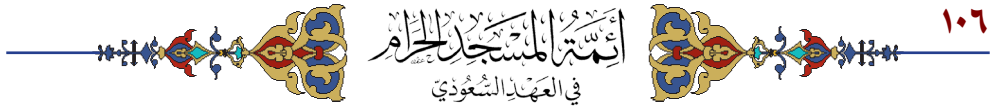 ١٠٦
أَئِمَّةُ المَسْجِدِ الحَرَامِ
فِي العَهْدِ السُّعُودِيّ